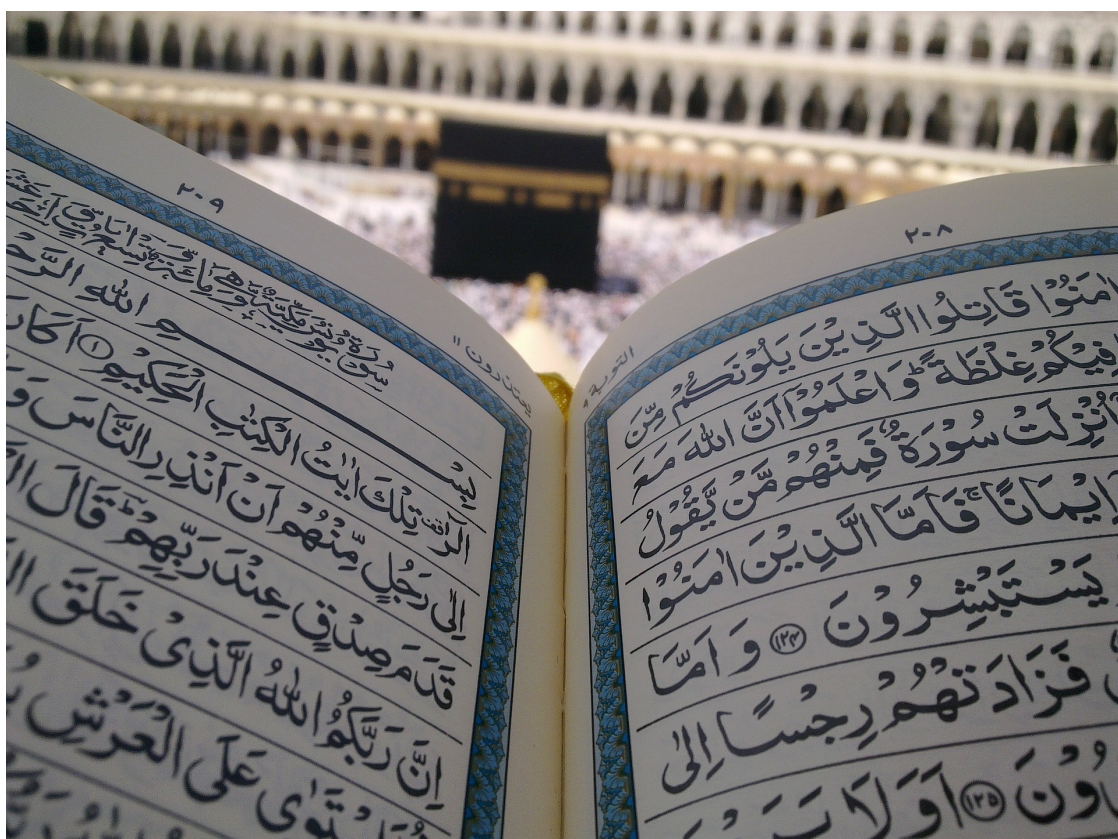 ٢٠٨
التوبة ٩
اٰمَنُوْا قَاتِلُوا الَّذِيْنَ يَلُوْنَكُمْ مِّنَ
فِيْكُمْ غِلْظَةً ؕ وَاعْلَمُوْۤا اَنَّ اللّٰهَ مَعَ
اُنْزِلَتْ سُوْرَةٌ فَمِنْهُمْ مَّنْ يَّقُوْلُ
اِيْمَانًا ۚ فَاَمَّا الَّذِيْنَ اٰمَنُوْا
يَسْتَبْشِرُوْنَ ١٢٤ وَ اَمَّا
فَزَادَتْهُمْ رِجْسًا اِلٰى
١٢٥ اَوَلَا
٢٠٩
يعتذرون ١١
سُوْرَةُ يُوْنُسَ مَكِّيَّةٌ
بِسْـــمِ اللّٰهِ
الٓرٰ ۟ تِلْكَ اٰيٰتُ الْكِتٰبِ الْحَكِيْمِ ١ اَكَانَ
اِلٰى رَجُلٍ مِّنْهُمْ اَنْ اَنْذِرِ النَّاسَ وَ
قَدَمَ صِدْقٍ عِنْدَ رَبِّهِمْ ؕ قَالَ
اِنَّ رَبَّكُمُ اللّٰهُ الَّذِىْ خَلَقَ
عَلَى الْعَرْشِ